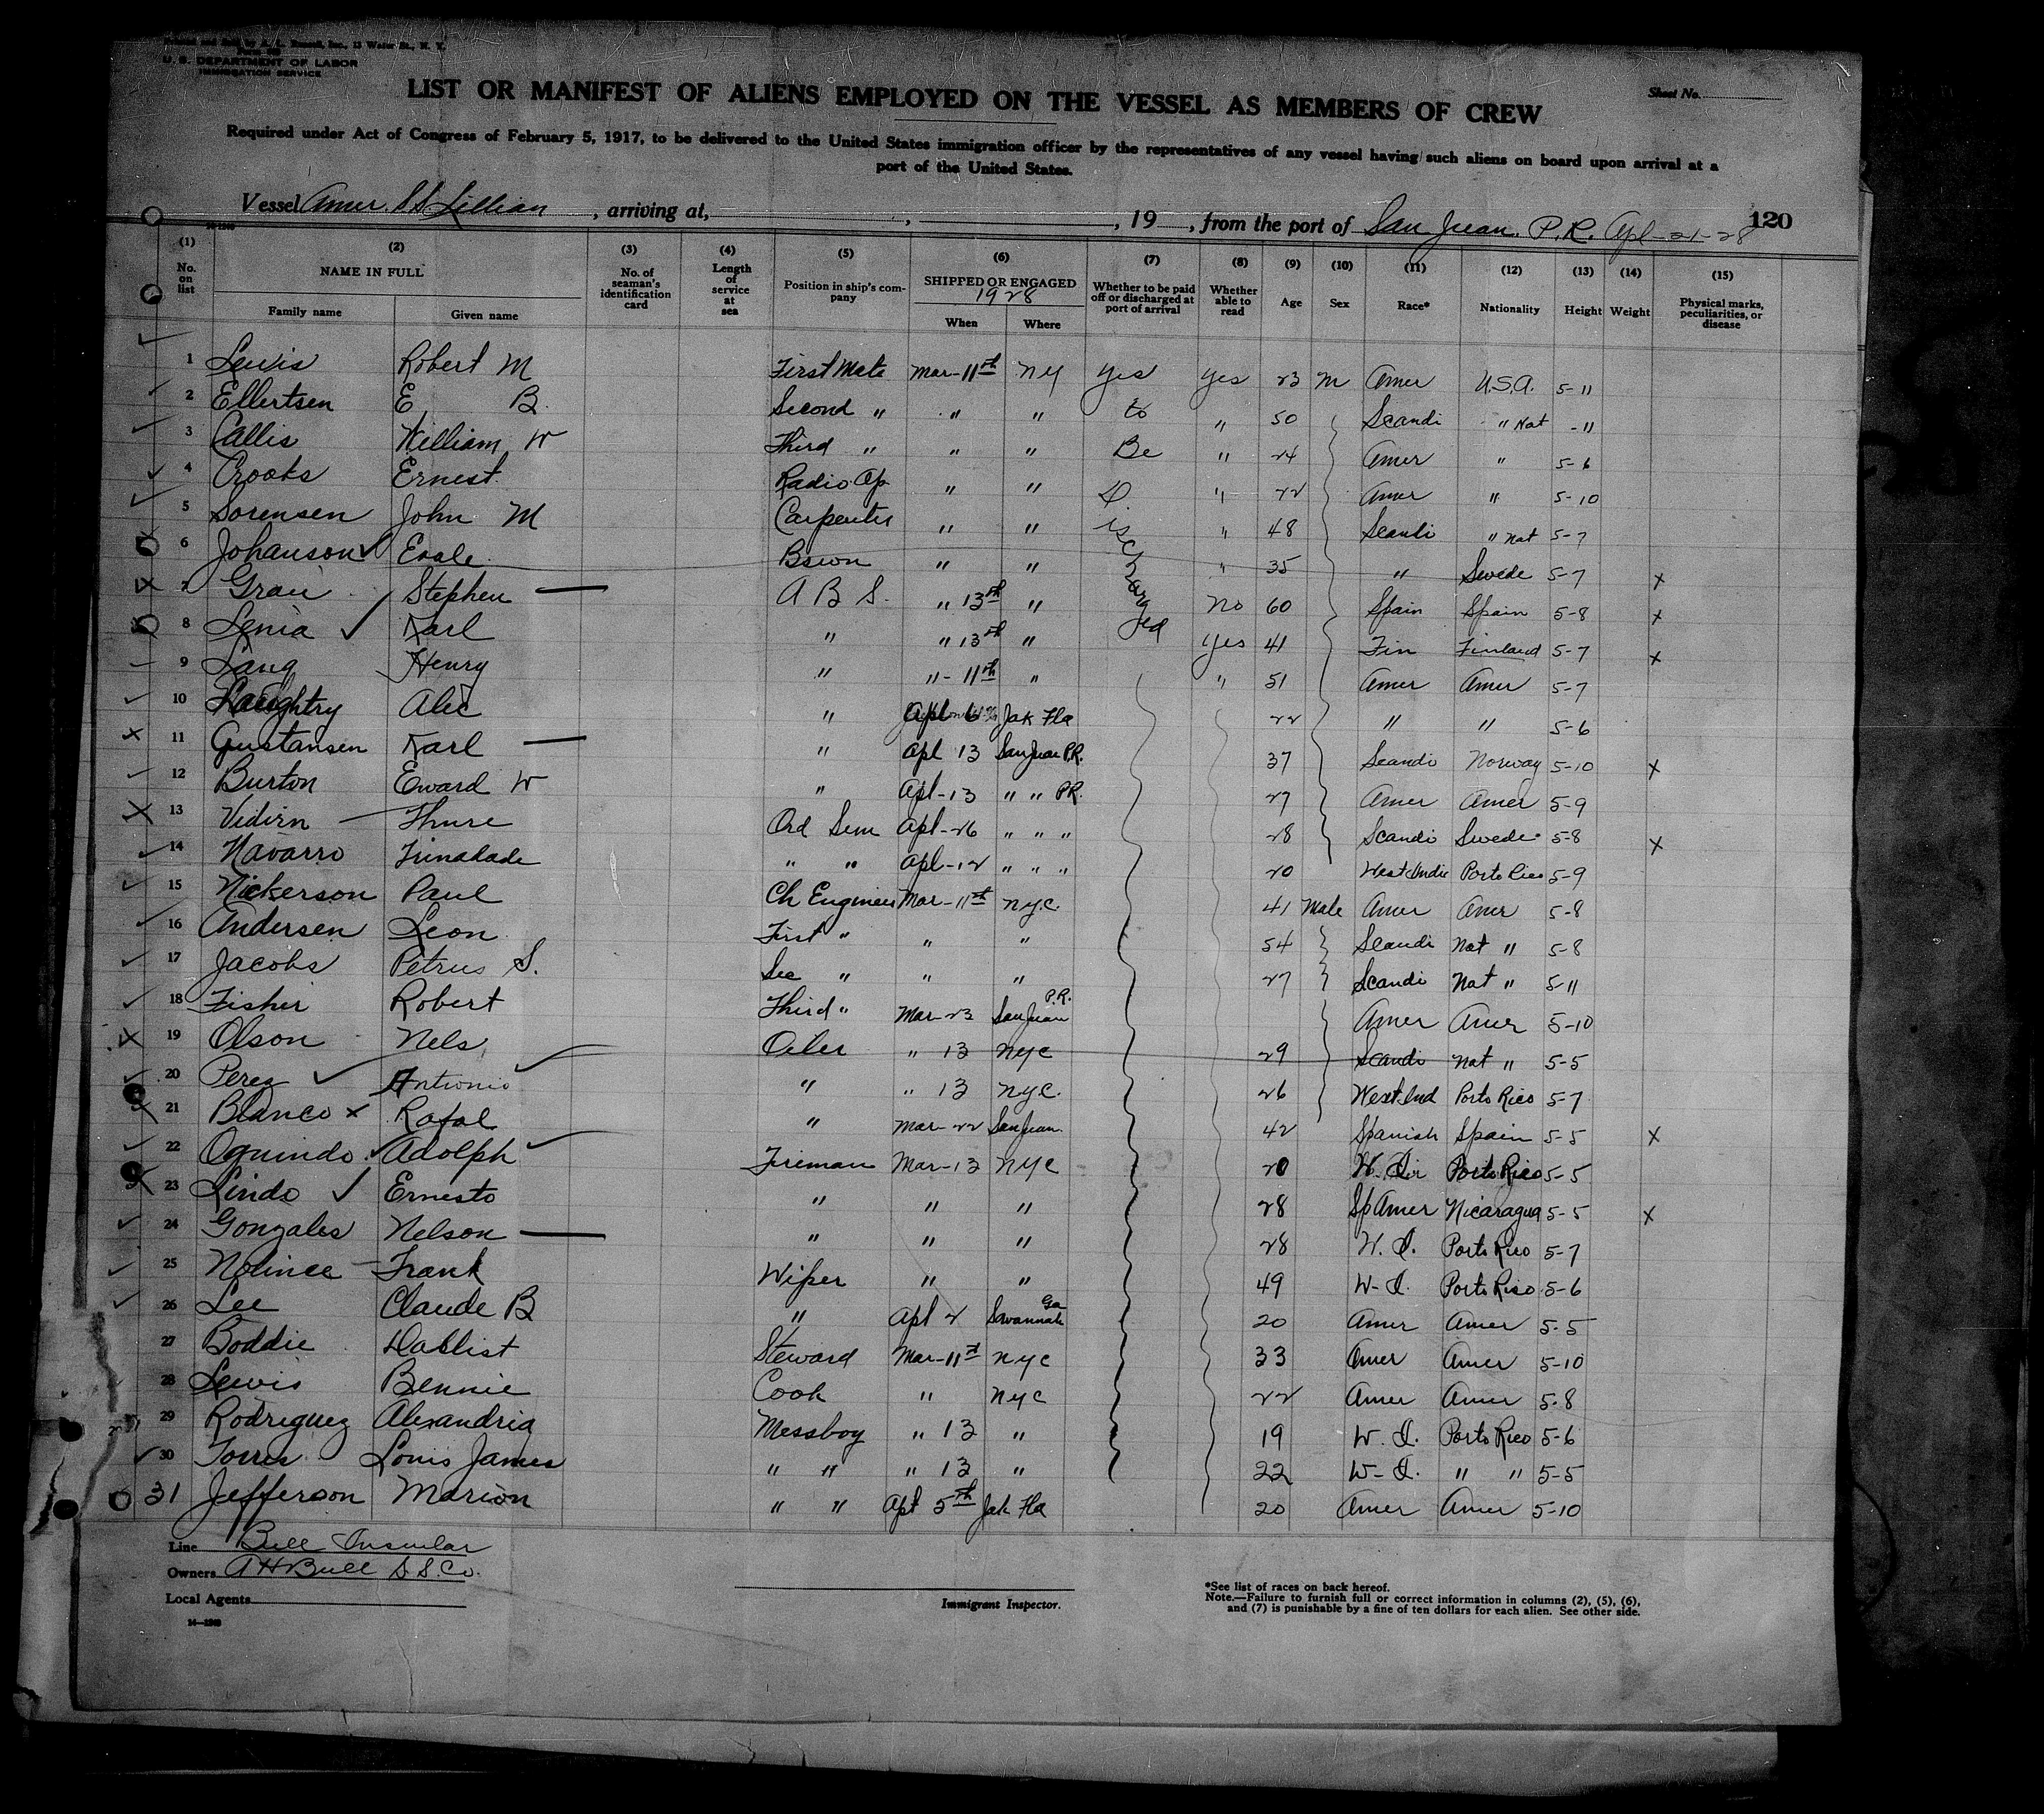 U. S. DEPARTMENT OF LABOR
IMMIGRATION SERVICE
Sheet No.
LIST OR MANIFEST OF ALIENS EMPLOYED ON THE VESSEL AS MEMBERS OF CREW
Required under Act of Congress of February 5, 1917, to be delivered to the United States immigration officer by the representatives of any vessel having such aliens on board upon arrival at a
port of the United States.
Vessel Amer. SS Lillian, arriving at, , 19 , from the port of San Juan. P.R. Apl-21-28 120
(1) (2) (3) (4) (5) (6) (7) (8) (9) (10) (11) (12) (13) (14) (15)
No. on list NAME IN FULL Family name Given name No. of seaman's identification card Length of service at sea Position in ship's company SHIPPED OR ENGAGED 1928 When Where Whether to be paid off or discharged at port of arrival Whether able to read Age Sex Race* Nationality Height Weight Physical marks, peculiarities, or disease
1 Lewis Robert M First Mate Mar-11th NY Yes Yes 23 M Amer U.S.A. 5-11
2 Ellertsen E B. Second " " " to " 50 Scandi " Nat -11
3 Callis William W Third " " " Be " 24 Amer " 5-6
4 Crooks Ernest. Radio Op " " D " 22 Amer " 5-10
5 Sorensen John M Carpenter " " isch " 48 Scandi " Nat 5-7
6 Johanson Bswn " " " 35 " Swede 5-7 x
7 Grau Stephen A B S. " 13th " arg No 60 Spain Spain 5-8 x
8 Lenia Karl " " 13th " ed Yes 41 Fin Finland 5-7 x
9 Lang Henry " " - 11th " " 51 Amer Amer 5-7
10 Laughtry Alec " Apl 6 Jak Fla 22 " " 5-6
11 Gustansen Karl " Apl 13 San Juan P.R. 37 Scandi Norway 5-10 x
12 Burton Eward W " Apl-13 " " P.R. 27 Amer Amer 5-9
13 Vidirn Thure Ord Sem Apl-26 " " " 28 Scandi Swede 5-8 x
14 Navarro " " Apl-12 " " " 20 West Indie Porto Rico 5-9
15 Nickerson Paul Ch Engineer Mar-11th N.Y.C. 41 Male Amer Amer 5-8
16 Andersen Leon First " " " 54 Scandi Nat " 5-8
17 Jacobs Petrus S. Sec " " " 27 Scandi Nat " 5-11
18 Fisher Robert Third " Mar-23 San Juan P.R. Amer Amer 5-10
19 Olson Nels Oiler " 13 NYC 29 Scandi Nat " 5-5
20 Perez Antionio " " 13 N.Y.C. 26 West Ind Porto Rico 5-7
21 Blanco x Rafal " Mar-22 San Juan. 42 Spanish Spain 5-5 x
22 Oquindo Adolph Fireman Mar-13 NYC 20 Porto Rico 5-5
23 Lindo Ernesto " " " 28 Sp Amer Nicaragua 5-5 x
24 Gonzales Nelson " " " 28 W. I. Porto Rico 5-7
25 Frank Wiper " " 49 W-I. Porto Rico 5-6
26 Lee Claude B " Apl 2 Savannah Ga 20 Amer Amer 5-5
27 Boddie Dallist Steward Mar-11th NYC 33 Amer Amer 5-10
28 Lewis Bennie Cook " NYC 22 Amer Amer 5-8
29 Rodriguez Alexandria Messboy " 13 " 19 W. I. Porto Rico 5-6
30 Torres Louis James " " " 13 " 22 W-I. " " 5-5
31 Jefferson Marion " " Apl 5th Jak Fla 20 Amer Amer 5-10
Line Bull Insular
Owners A H Bull S.S. Co.
Local Agents
Immigrant Inspector.
*See list of races on back hereof.
Note.—Failure to furnish full or correct information in columns (2), (5), (6),
and (7) is punishable by a fine of ten dollars for each alien. See other side.